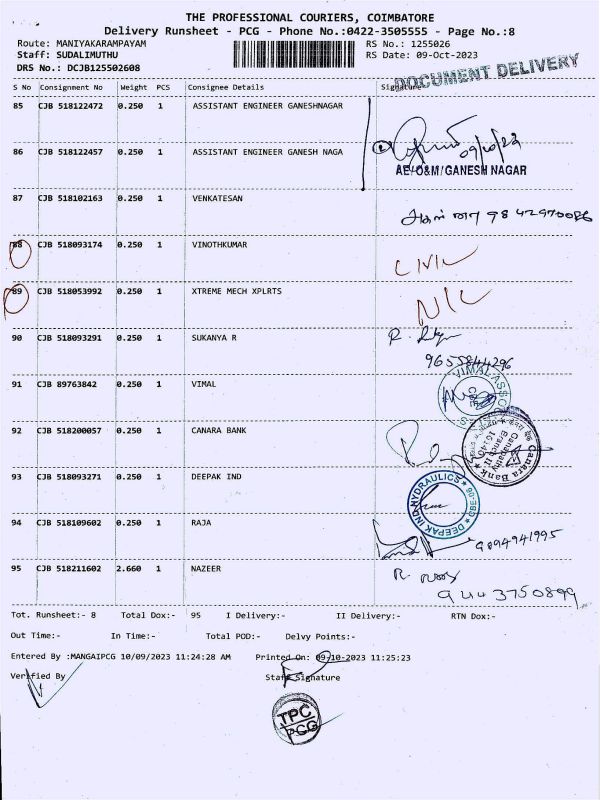 THE PROFESSIONAL COURIERS, COIMBATORE
Delivery Runsheet - PCG - Phone No.:0422-3505555 - Page No.:8
Route: MANIYAKARAMPAYAM RS No.: 1255026
Staff: SUDALIMUTHU RS Date: 09-Oct-2023
DRS No.: DCJB125502608
DOCUMENT DELIVERY
S No Consignment No Weight PCS Consignee Details Signature
85 CJB 518122472 0.250 1 ASSISTANT ENGINEER GANESHNAGAR
86 CJB 518122457 0.250 1 ASSISTANT ENGINEER GANESH NAGA
09/10/23
AE/O&M/GANESH NAGAR
87 CJB 518102163 0.250 1 VENKATESAN
88 CJB 518093174 0.250 1 VINOTHKUMAR
89 CJB 518053992 0.250 1 XTREME MECH XPLRTS
N/C
90 CJB 518093291 0.250 1 SUKANYA R
9655844296
91 CJB 89763842 0.250 1 VIMAL
VIMAL ASSOCIATES
92 CJB 518200057 0.250 1 CANARA BANK
Canara Bank
Ganapathy
Branch II
93 CJB 518093271 0.250 1 DEEPAK IND
DEEPAK IND HYDRAULICS
94 CJB 518109602 0.250 1 RAJA
9094941995
95 CJB 518211602 2.660 1 NAZEER
9443750899
Tot. Runsheet:- 8 Total Dox:- 95 I Delivery:- II Delivery:- RTN Dox:-
Out Time:- In Time:- Total POD:- Delvy Points:-
Entered By :MANGAIPCG 10/09/2023 11:24:28 AM Printed On: 09-10-2023 11:25:23
Verified By Staff Signature
TPC
PCG